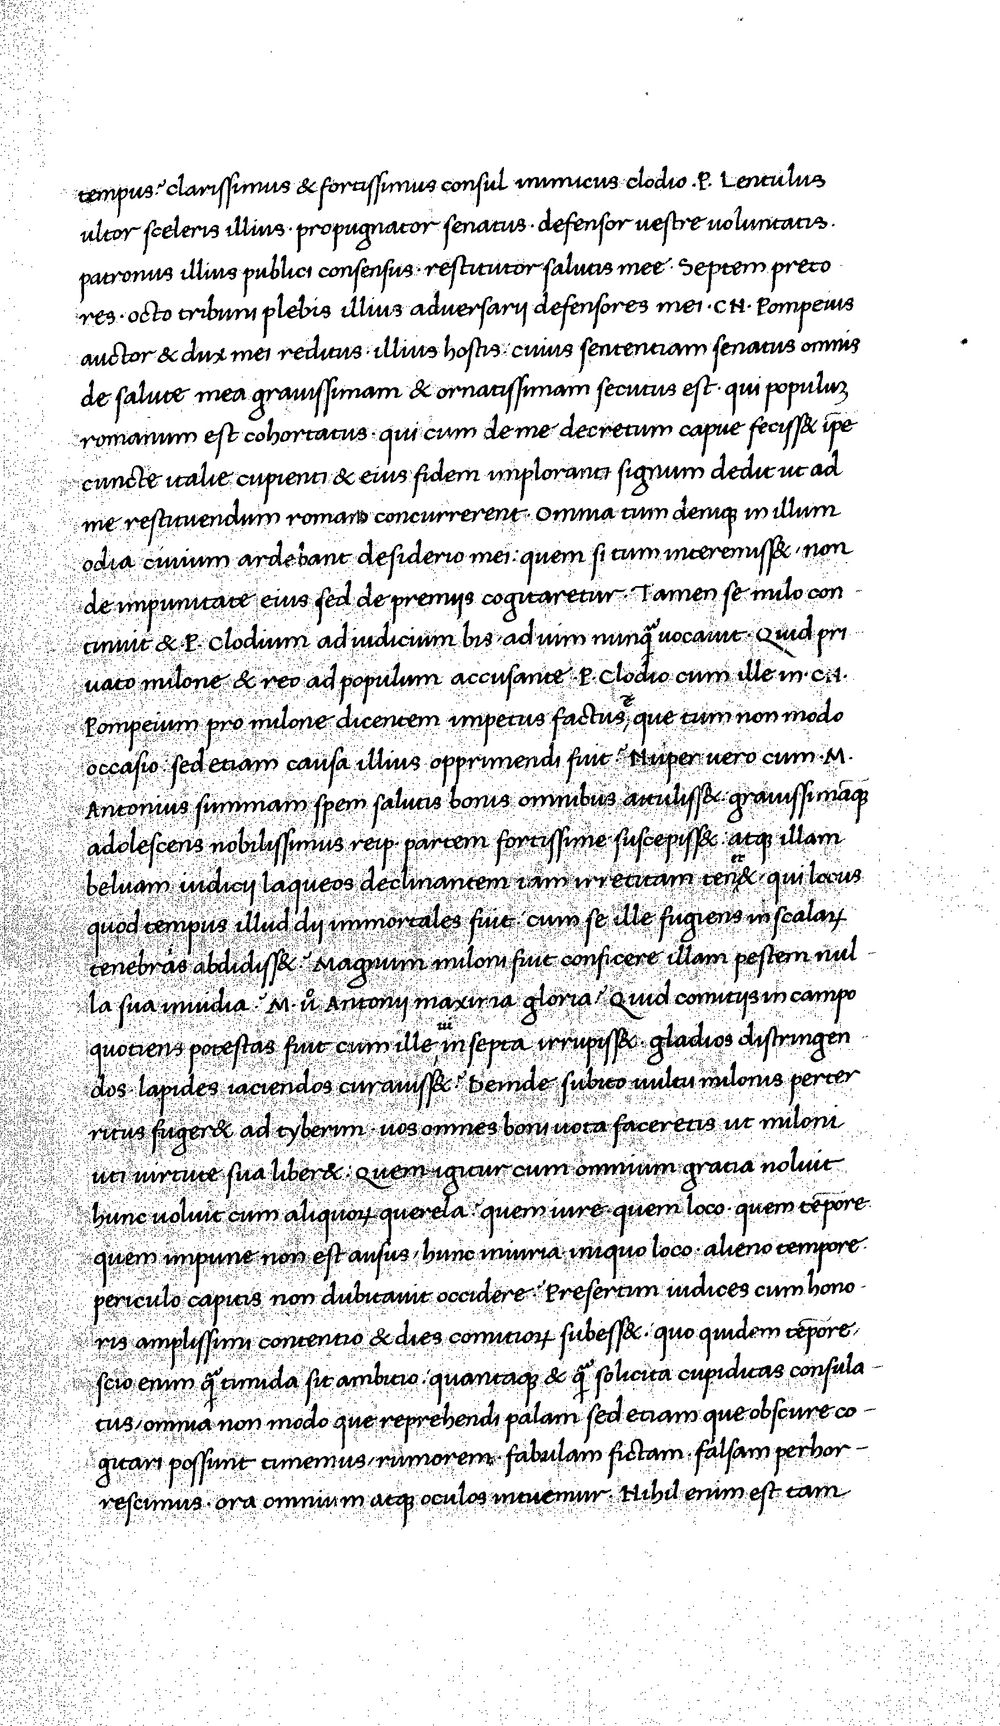 tempus? clarissimus & fortissimus consul inimicus clodio .P. Lentulus
ultor sceleris illius · propugnator senatus · defensor uestre uoluntatis .
patronus illius publici consensus · restitutor salutis mee · Septem preto
res · octo tribuni plebis illius adversarij defensores mei · CN · Pompeius
auctor & dux mei reditus · illius hostis : cuius sententiam senatus omnis
de salute mea grauissimam & ornatissimam secutus est · qui populuꝫ
romanum est cohortatus · qui cum de me decretum capue feciss& ip̄e
cuncte italie cupienti & eius fidem imploranti signum dedit ut ad
me restituendum romam concurrerent · Omnia tum deniqꝫ in illum
odia ciuium ardebant desiderio mei : quem si tum interemiss& · non
de impunitate eius sed de premijs cogitaretur · Tamen se milo con
tinuit & P. Clodium ad iudicium bis · ad uim nunq̃ uocauit · Quid pri
uato milone & reo ad populum accusante · P. Clodio cum ille in · CN ·
Pompeium pro milone dicentem impetus factus ē, que tum non modo
occasio : sed etiam causa illius opprimendi fuit ? Nuper uero cum · M ·
Antonius summam spem salutis bonis omnibus attuliss& · grauissimāqꝫ
adolescens nobilissimus reip · partem fortissime suscepiss& · atqꝫ illam
beluam iudicij laqueos declinantem iam irretitam tener& · qui locus
quod tempus illud dij immortales fuit · cum se ille fugiens in scalaꝝ
tenebras abdidiss& ? Magnum miloni fuit conficere illam pestem nul
la sua inuidia ? M · ů Antonij maxima gloria ? Quid comitijs in campo
quotiens potestas fuit cum ille ui in septa irrupiss& · gladios distringen
dos · lapides iaciendos curauiss& ? Deinde subito uultu milonis perter
ritus fuger& ad tyberim · uos omnes boni uota faceretis ut miloni
uti uirtute sua liber& · Quem igitur cum omnium gratia noluit
hunc uoluit cum aliquoꝝ querela ? quem iure · quem loco · quem tēpore
quem impune non est ausus · hunc iniuria iniquo loco · alieno tempore ·
periculo capitis non dubitauit occidere ? Presertim iudices cum hono
ris amplissimi contentio & dies comitioꝝ subess& · quo quidem tēpore /
scio enim q̃ timida sit ambitio : quantaqꝫ & q̃ solicita cupiditas consula
tus / omnia non modo que reprehendi palam sed etiam que obscure co
gitari possunt timemus / rumorem · fabulam fictam · falsam perhor
rescimus · ora omnium atqꝫ oculos intuemur · Nihil enim est tam